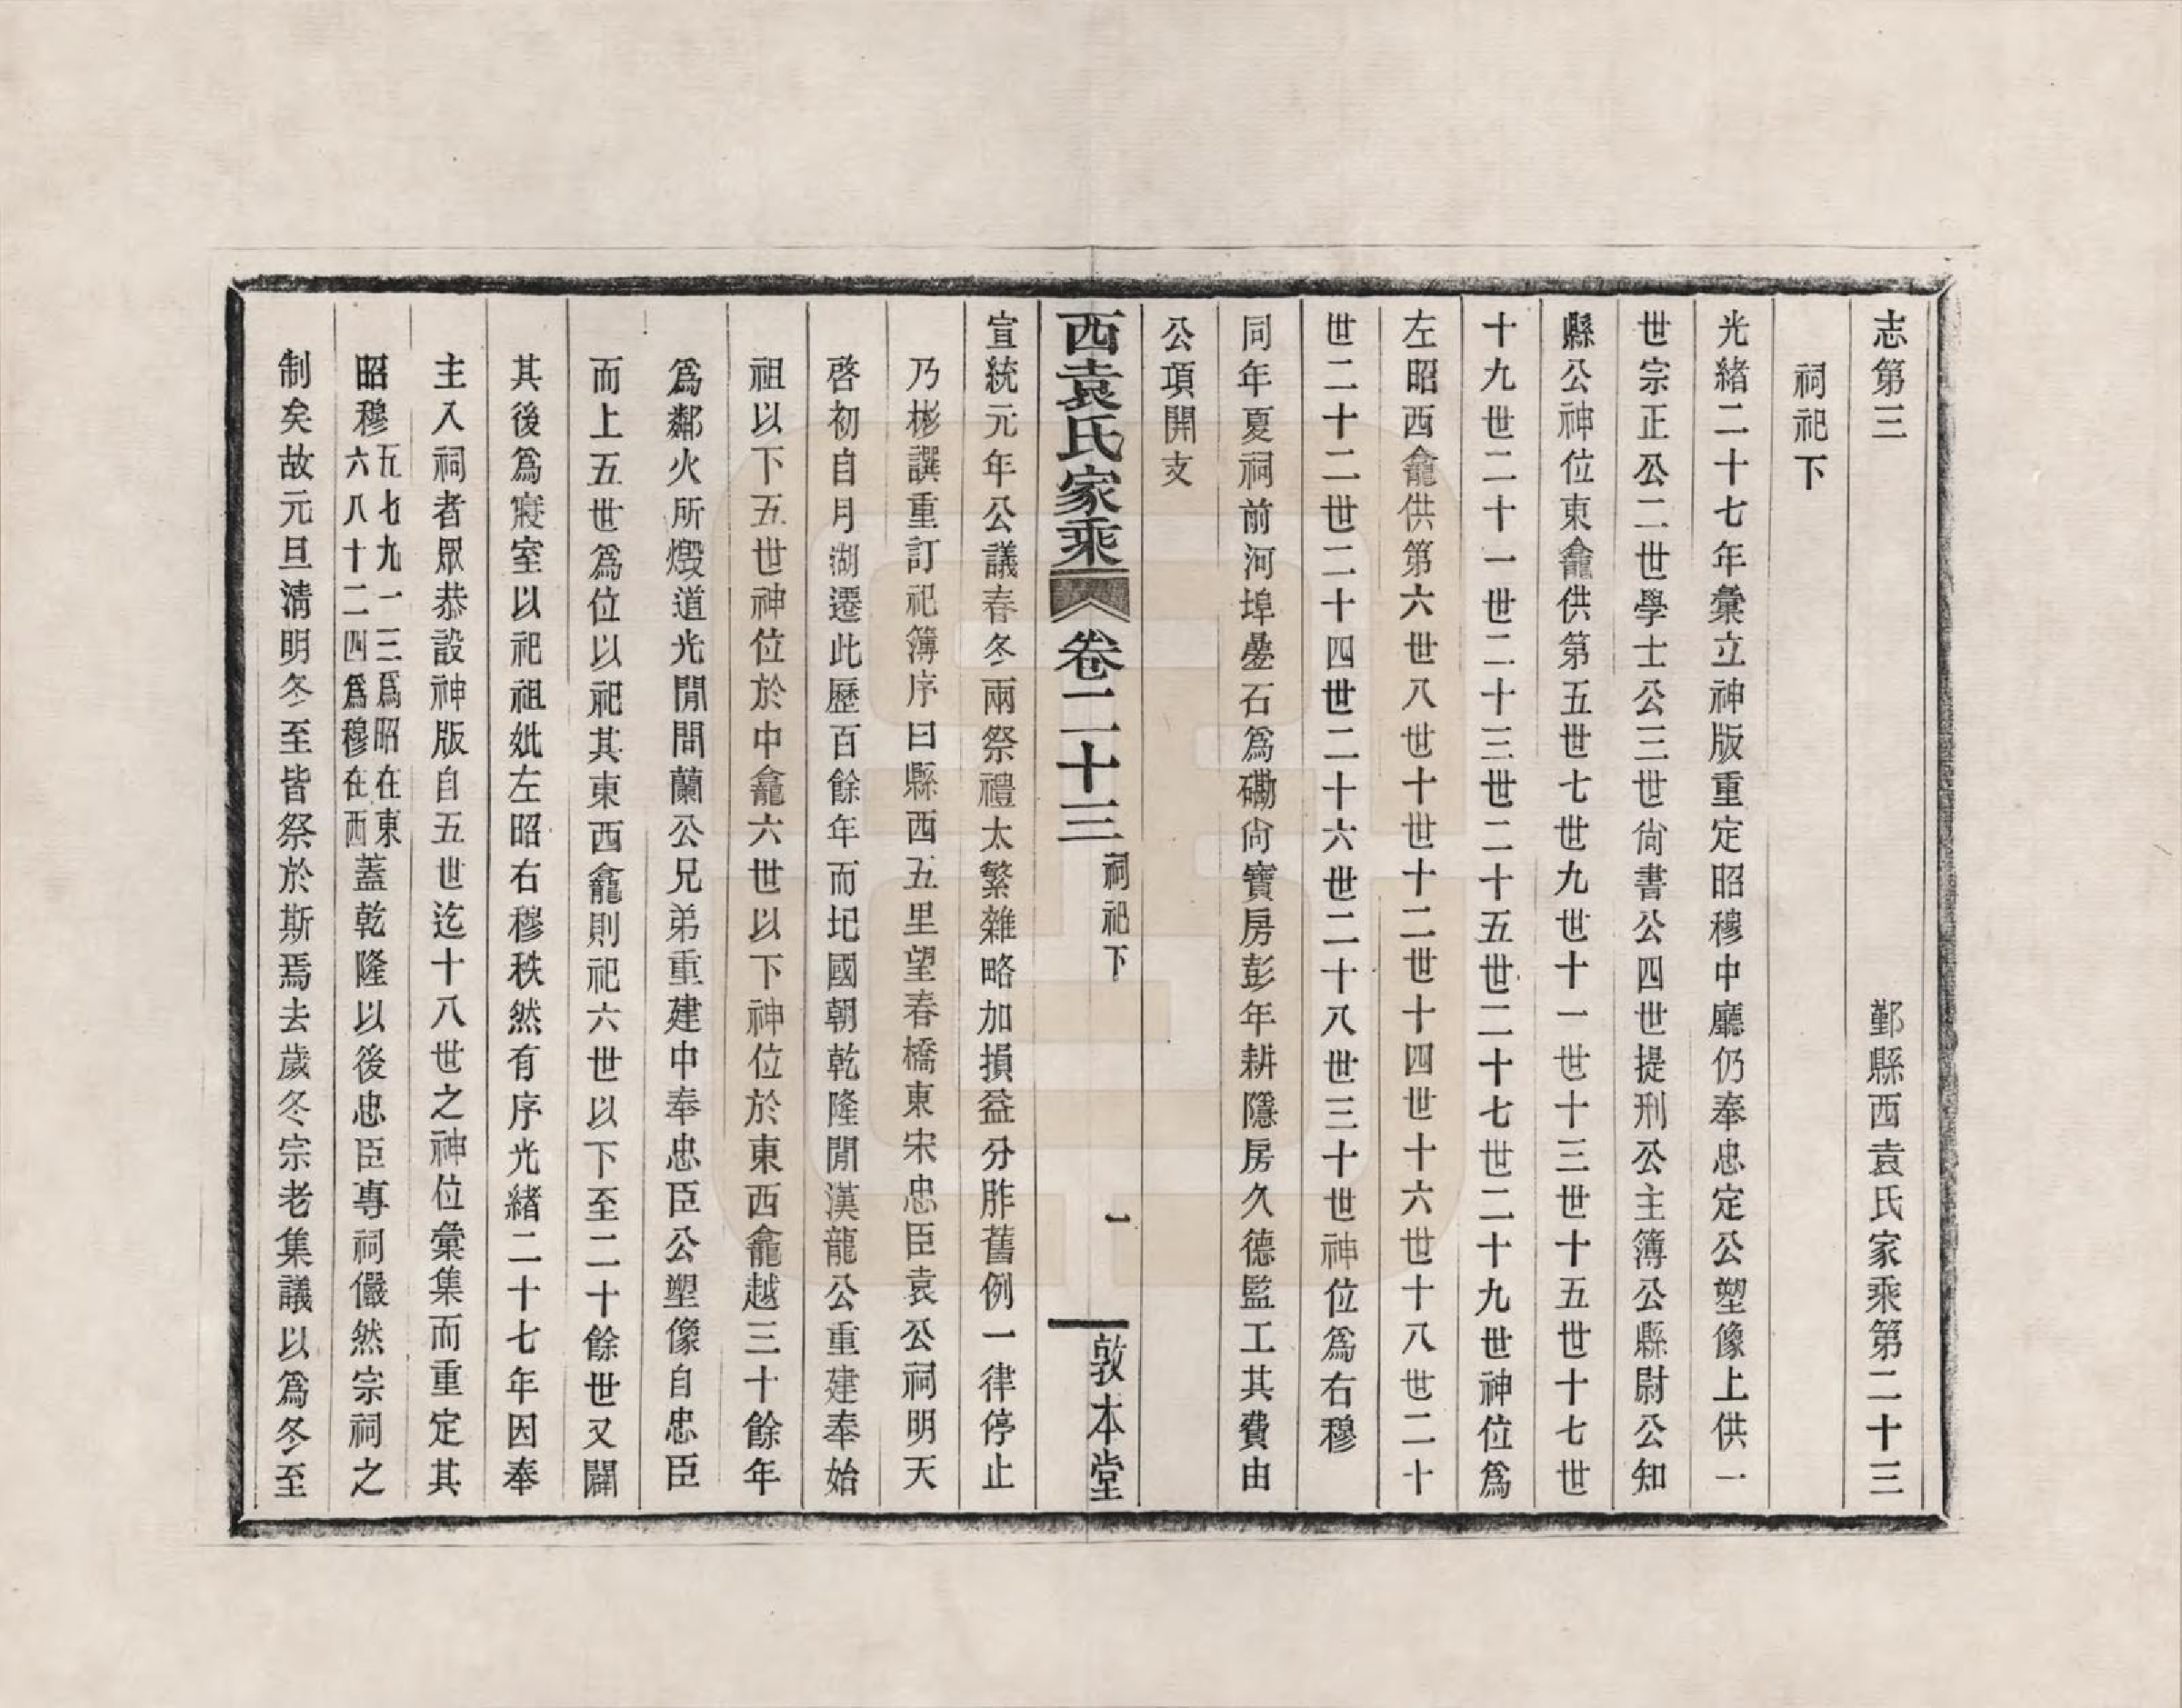 志第三　鄞縣西袁氏家乘第二十三
祠祀下
光緒二十七年彙立神版重定昭穆中廳仍奉忠定公塑像上供一
世宗正公二世學士公三世尙書公四世提刑公主簿公縣尉公知
縣公神位東龕供第五世七世九世十一世十三世十五世十七世
十九世二十一世二十三世二十五世二十七世二十九世神位爲
左昭西龕供第六世八世十世十二世十四世十六世十八世二十
世二十二世二十四世二十六世二十八世三十世神位爲右穆
同年夏祠前河埠壘石爲磡尙寶房彭年耕隱房久德監工其費由
公項開支
西袁氏家乘　卷二十三　祠祀下　一　敦本堂
宣統元年公議春冬兩祭禮太繁雜略加損益分胙舊例一律停止
乃彬譔重訂祀簿序曰縣西五里望春橋東宋忠臣袁公祠明天
啓初自月湖遷此歷百餘年而圮國朝乾隆閒漢龍公重建奉始
祖以下五世神位於中龕六世以下神位於東西龕越三十餘年
爲鄰火所燬道光閒間蘭公兄弟重建中奉忠臣公塑像自忠臣
而上五世爲位以祀其東西龕則祀六世以下至二十餘世又闢
其後爲寢室以祀祖妣左昭右穆秩然有序光緒二十七年因奉
主入祠者眾恭設神版自五世迄十八世之神位彙集而重定其
昭穆五七九一三爲昭在東六八十二四爲穆在西蓋乾隆以後忠臣專祠儼然宗祠之
制矣故元旦淸明冬至皆祭於斯焉去歲冬宗老集議以爲冬至